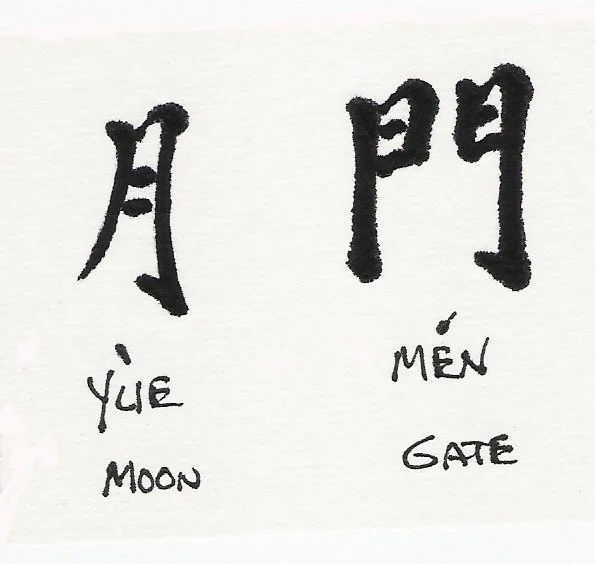 月 門
YÙE MÉN
MOON GATE